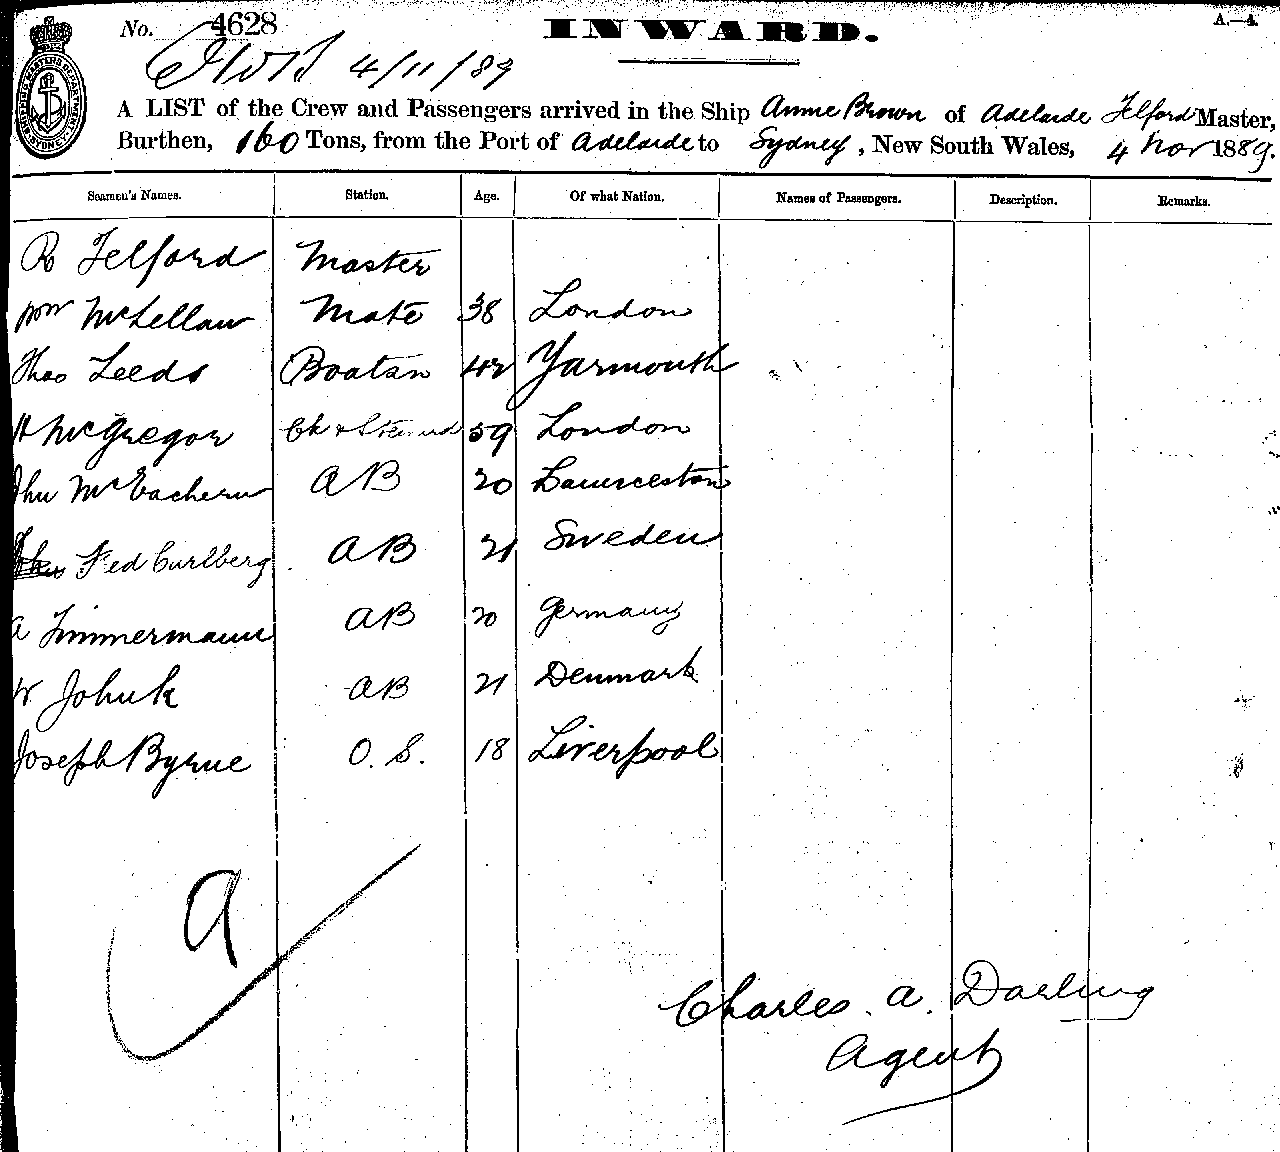 No. 4628
INWARD.
A.—4.
4/11/89
A LIST of the Crew and Passengers arrived in the Ship Annie Brown of Adelaide Telford Master,
Burthen, 160 Tons, from the Port of Adelaide to Sydney, New South Wales, 4 Nov 1889.
Seamen's Names. Station. Age. Of what Nation. Names of Passengers. Description. Remarks.
R Telford Master
Wm McLellan Mate 38 London
Thos Leeds Boatsn 42 Yarmouth
McGregor Ck & Steward 59 London
Jhn McEachern AB 20 Launceston
Fed Curlberg AB 21 Sweden
A Zimmermann AB 20 Germany
W Johnk AB 21 Denmark
Joseph Byrne O.S. 18 Liverpool
a
Charles A. Darling
Agent